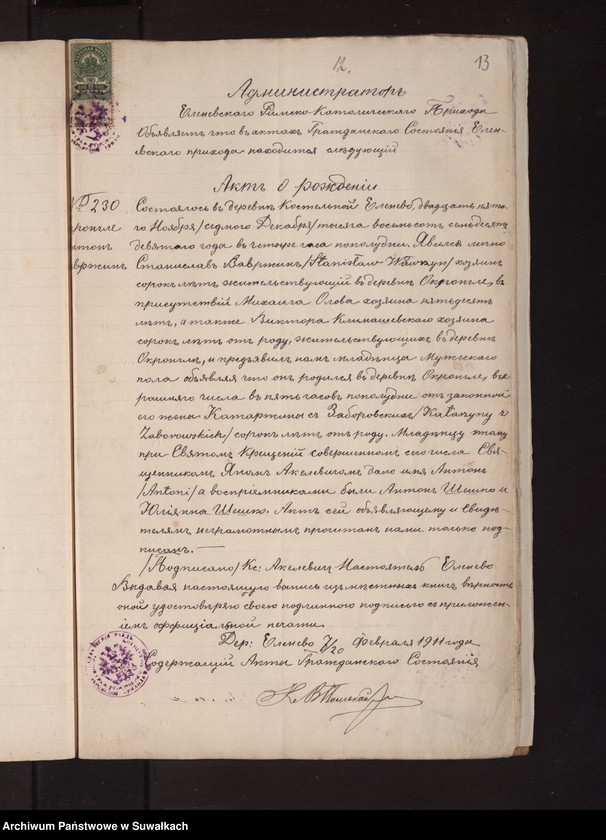 12.
13
Администраторъ
Еленевскаго Римско-Католическаго Прихода
Объявляетъ что въ актахъ Гражданскаго Состоянія Еле-
невскаго прихода находится слѣдующій
Актъ о рожденіи
№ 230
Состоялось въ деревнѣ Костельной Еленево, двадцать пята-
го Ноября /седмого Декабря/ тысяча восемсотъ семьдесятъ
девятаго года въ четыре часа пополудни. Явился лично
Станиславъ Вавржинъ /Stanisław Wawrzyn/ хозяинъ
сорокъ лѣтъ, жительствующій въ деревнѣ Окронгле, въ
присутствіи Михаила Олова хозяина пятьдесятъ
лѣтъ, а также Виктора Климашевскаго хозяина
сорокъ лѣтъ отъ роду, жительствующихъ въ деревнѣ
Окронгле, и предъявилъ намъ младенца Мужескаго
пола объявляя что онъ родился въ деревнѣ Окронгле, вче-
рашняго числа въ пять часовъ пополудни отъ законной
его жены Катаржины съ Заборовскихъ /Katarzyny z
Zaborowskich/ сорокъ лѣтъ отъ роду. Младенцу этому
при Святомъ Крещеніи совершенномъ сего числа Свя-
щенникомъ Яномъ Акелевичомъ дано имя Антонъ
/Antoni/ а воспріемниками были Антонъ Шешко и
Юліянна Шешко. Актъ сей объявляющему и свидѣ-
телямъ неграмотнымъ прочитанъ нами только под-
писанъ.
/Подписано/ Кс: Акелевич Настоятель Еленево
Выдавая настоящую выпись изъ мѣстныхъ книг вѣрность
оной удостовѣряю своею подлинного подписью съ приложен-
іемъ оффиціальной печати.
Дер: Еленево 7/20 Февраля 1911 года
Содержащій Акты Гражданскаго Состоянія
Archiwum Państwowe w Suwałkach